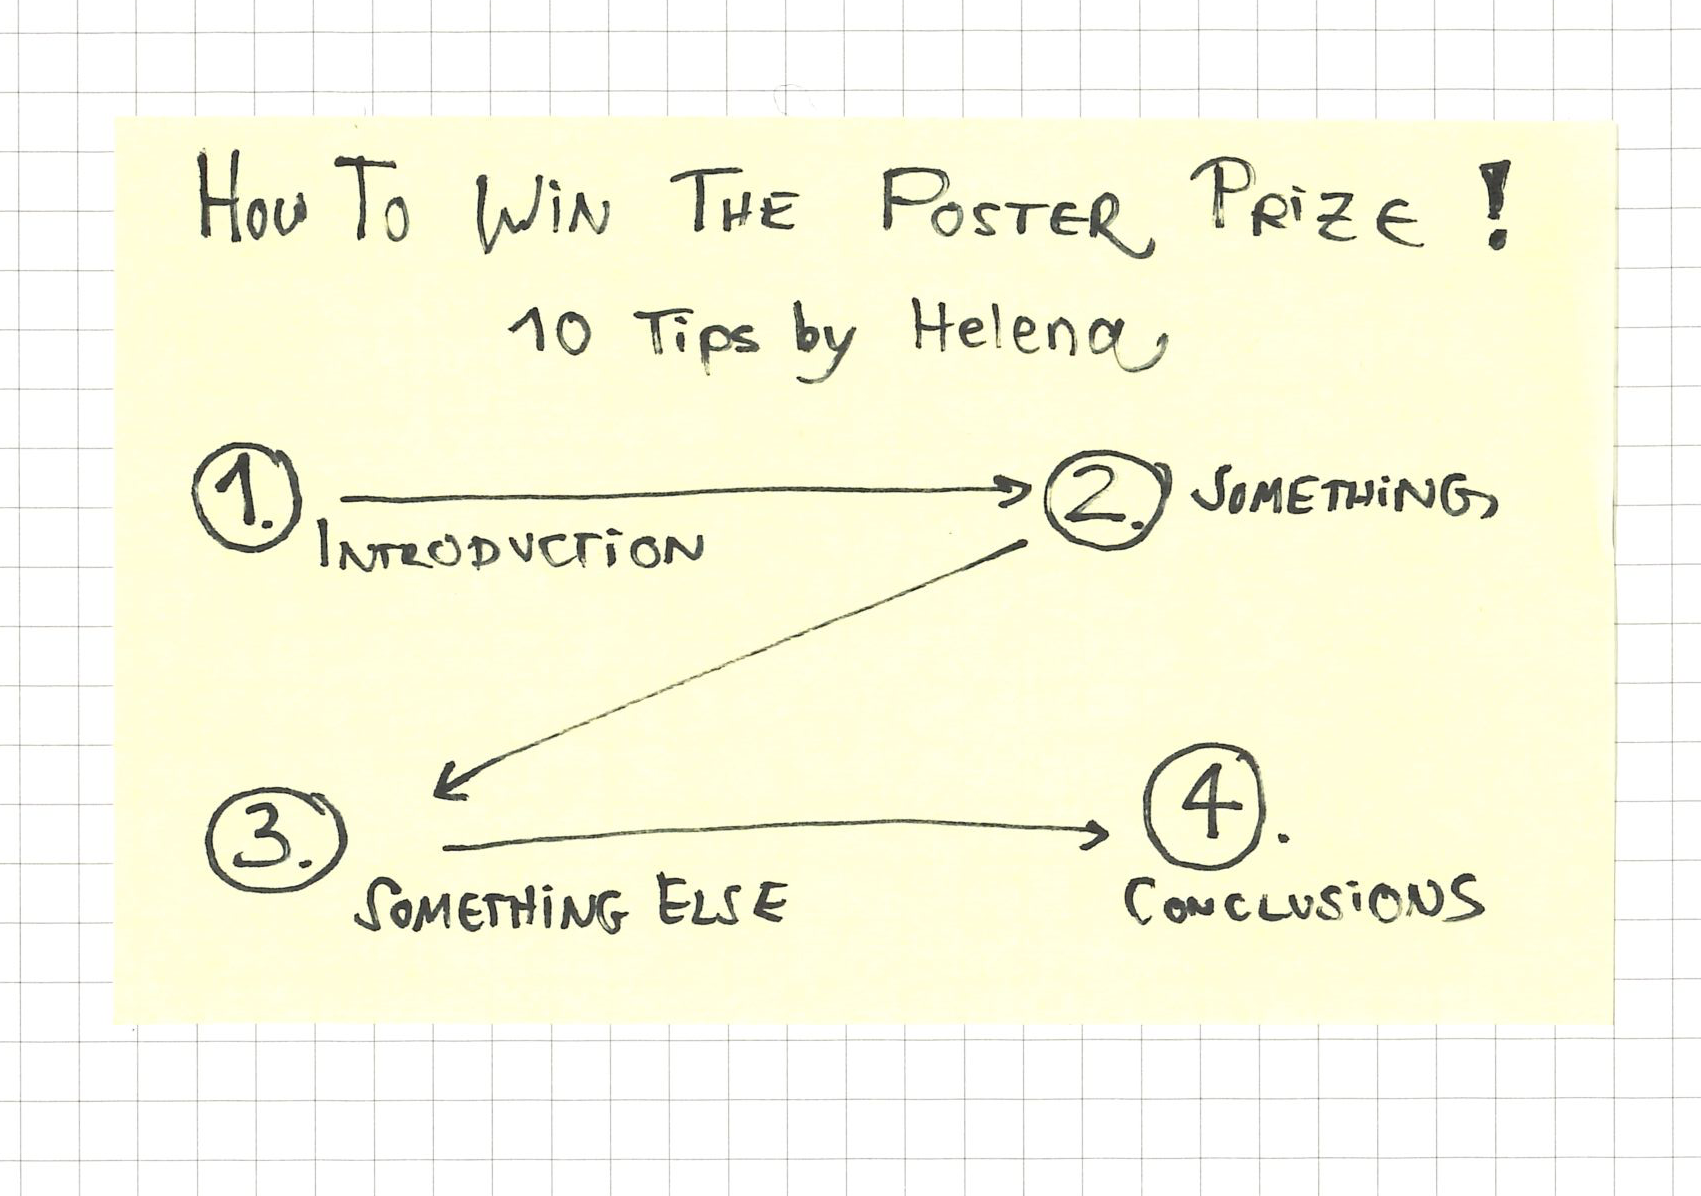 HOW TO WIN THE POSTER PRIZE!
10 Tips by Helena
1. INTRODUCTION
2. SOMETHING
3. SOMETHING ELSE
4. CONCLUSIONS